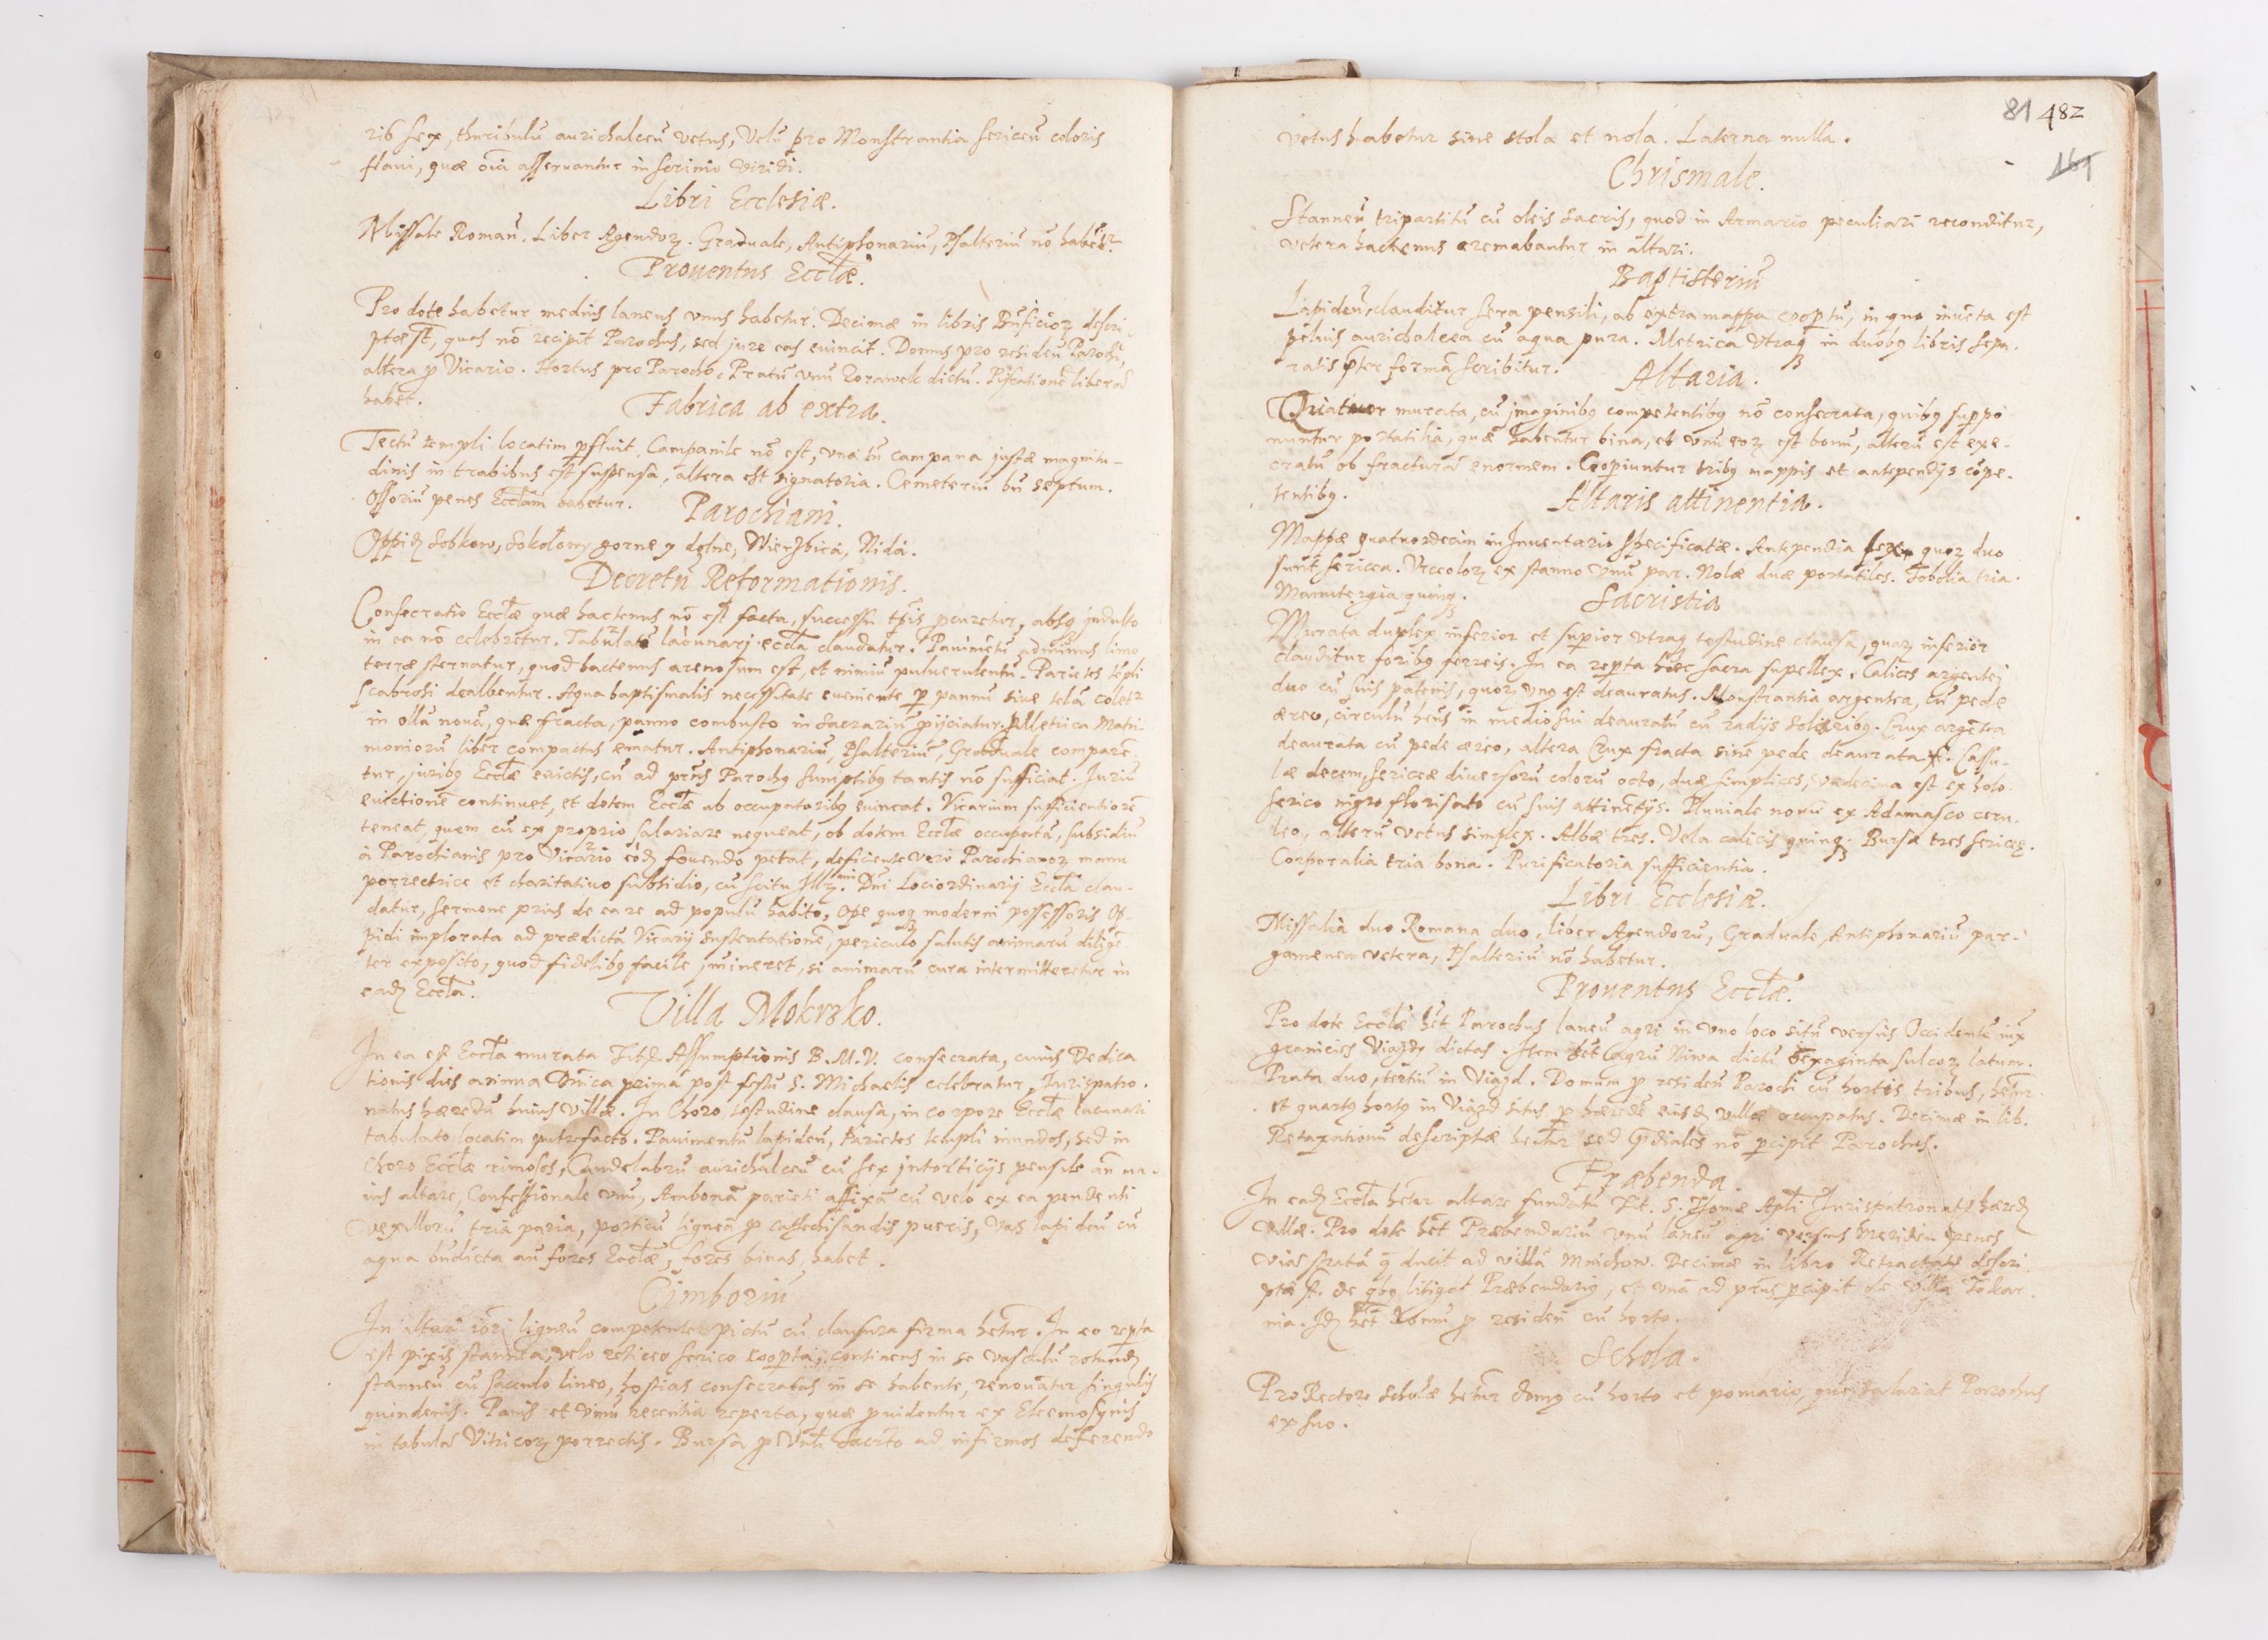 ris sex, thuribulū aurichalceū vetus, Velū pro Monstrantia sericeū coloris
flaui, quæ oīa asseruantur in scrinio viridi.
Libri Ecclesiæ.
Missale Roman̄. Liber Agendoꝝ. Graduale, Antiphonariū, Psalteriū nō habēt̄.
Prouentus Eccl̄æ.
Pro dote habetur medius laneus vnus habetur. Decimæ in libris Bn̄ficioꝝ descri
ptæ st̄, quas nō recipit Parochus, sed jure eas euincit. Domus pro residen̄ Parochi,
altera p Vicario. Hortus pro Parocho. Pratū vnū Zorawek dictū. Piscationē liberā
habet.
Fabrica ab extra.
Tectū templi locatim pfluit. Campanile nō est, vna tn̄ campana justæ magnitu-
dinis in trabibus est suspensa, altera est signatoria. Cemeteriū bn̄ septum.
Ossoriū penes Eccl̄am habetur.
Parochiani.
Oppid Sobkow, Sokołowy gorne y dolne, Wierzbica, Nida.
Decretū Reformationis.
Consecratio Eccl̄æ quæ hactenus nō est facta, successu tp̄is pcuretur, absq jndulto
in ea nō celebretur. Tabulatū lacunarj eccl̄a claudatur. Pauimentū adminus limo
terræ sternatur, quod hactenus arenosum est, et nimiū puluerulentū. Parietes tēpli
scabrosi dealbentur. Aqua baptismalis necessitate eueniente p pannū siue telā colet̄
in ollā nouā, quæ fracta, panno combusto in Sacrariū pijciatur. Metrica Matri-
moniorū liber compactus ematur. Antiphonariū, Psalteriū, Graduale comparē-
tur, juribꝫ Eccl̄æ euictis, cū ad pn̄s Parochꝫ sumptibꝫ tantis nō sufficiat. Juriū
euictionē continuet, et dotem Eccl̄æ ab occupatoribꝫ euincat. Vicarium sufficientiorē
teneat, quem cū ex proprio salariare nequeat, ob dotem Eccl̄æ occupatā, subsidiū
à Parochianis pro Vicario eod fouendo petat, deficiente vero Parochianoꝝ manu
porrectrice et charitatiuo subsidio, cū scitu Jllꝝmi Dn̄i Lociordinarij Eccl̄a clau-
datur, sermone prius de ea re ad populū habito, ope quoq moderni possessoris Op-
pidi implorata ad prædictā Vicarij sustentationē, periculo salutis animarū diligē
ter exposito, quod fidelibꝫ facile jmineret, si animarū cura intermitteretur in
ead Eccl̄a.
Villa Mokrzko.
In ea est Eccl̄a murata Tit. Assumptionis B. M. V. consecrata, cuius Dedica
tionis dies annua Dn̄ica prima post festū S. Michaelis celebratur, Jurispatro-
natus hæredū huius Villæ. In Choro testudine clausa, in corpore Eccl̄æ lacunari
tabulato locatim putrefacto. Pauimentū lapideū, Parietes templi mundos, sed in
Choro Eccl̄æ rimosos, Candelabrū aurichalceū cū sex jntorticijs pensile an̄ ma-
ius altare, Confessionale vnū, Ambonā parieti affixā cū velo ex ea pendenti
vexillorū tria paria, porticū ligneā p cathechisandis pueris, Vas lapideū cū
aqua bn̄dicta an̄ fores Eccl̄æ, fores binas, habet.
Cimboriū
In altari iori ligneū competenter pictū cū clausura firma hetur. In eo repta
est pixis stannea, velo reticeo serico coopta, continens in se vasculū rotund
stanneū cū sacculo lineo, hostias consecratas in se habente, renouātur singulis
quindenis. Panis et vinū recentia reperta, quæ puidentur ex Eleemosynis
in tabulā Vitricoꝝ porrectis. Bursa p Vnl̄i Sacrto ad infirmos deferendo
81 482
161
vetus habetur sine stola et nola. Laterna nulla.
Chrismale.
Stanneū tripartitū cū oleis Sacris, quod in Armario peculiari reconditur,
vetera hactenus cremabantur in altari.
Baptisteriū
Lapideū, clauditur sera pensili, ab extra mappa coop̄tū, in quo inuēta est
peluis aurichalcea cū aqua pura. Metrica vtraqꝫ in duobꝫ libris sepa-
ratis pter formā scribitur.
Altaria.
Quatuor murata, cū jmaginibꝫ competentibꝫ nō consecrata, quibꝫ suppo
nuntur portatilia, quæ habentur bina, et vnū eoꝝ est bonū, alterū est exe-
cratū ob fracturā enormem. Coopiuntur tribꝫ mappis et antependijs cōpe-
tentibꝫ.
Altaris attinentia.
Mappæ quatuordecim in Inuentario specificatæ. Antependia sex, quoꝝ duo
sunt sericea. Vrceoloꝝ ex stanno vnū par. Nolæ duæ portatiles. Tobolia tria.
Manutergia quinqꝫ.
Sacristia
Murata duplex inferior et superior vtraqꝫ testudine clausa, quaꝝ inferior
clauditur foribꝫ ferreis. In ea reperta hæc sacra supellex. Calices argentej
duo cū suis patenis, quoꝝ vnꝫ est deauratus. Monstrantia argentea, cū pede
æreo, circulū hēns in medio sui deauratū cū radijs solaribꝫ. Crux argētea
deaurata cū pede æreo, altera Crux fracta sine pede deaurata. Casu-
læ decem, sericeæ diuersorū colorū octo, duæ simplices, vndecima est ex holo-
serico nigro florisato cū suis attinētijs. Pluuiale nouū ex Adamasco ceru-
leo, alterū vetus simplex. Albæ tres. Vela calicis quinqꝫ. Bursæ tres sericeę.
Corporalia tria bona. Purificatoria sufficientia.
Libri Ecclesiæ.
Missalia duo Romana duo, liber Agendorū, Graduale, Antiphonariū par-
gamenea vetera, Psalteriū nō habetur.
Prouentus Eccl̄æ.
Pro dote Eccl̄æ het Parochus laneū agri in vno loco sitū versus Occidentē iux
granicies Viazdy dictas. Item het agrū Niwa dictū sexaginta sulcoꝝ latum.
Prata duo, tertiū in Viazd. Domum p residen̄ Parochi cū hortis tribus, hetur
et quartꝫ hortꝫ in Viazd situs p hæredē eiusd villæ occupatus. Decimæ in lib.
Retaxationū descriptæ hentur sed Prædiales nō pcipit Parochus.
Præbenda.
In ead Eccl̄a hetur altare fundatū Tit. S. Thomæ Apl̄i Jurispatronatꝫ hæred
villæ. Pro dote het Præbendariū vnū laneū agri versus Meridiē penes
viā stratā q ducit ad villā Mnichow. Decimæ in libro Retractatꝫ descri
ptæ st. de qbꝫ litigat Præbendariꝫ, et vnā ad pn̄s pcipit de villa Tokar
nia. Jd het domū p residen̄ cū horto.
Schola.
Pro Rectore scholæ hetur domꝫ cū horto et pomario, quē salariat Parochus
ex suo.